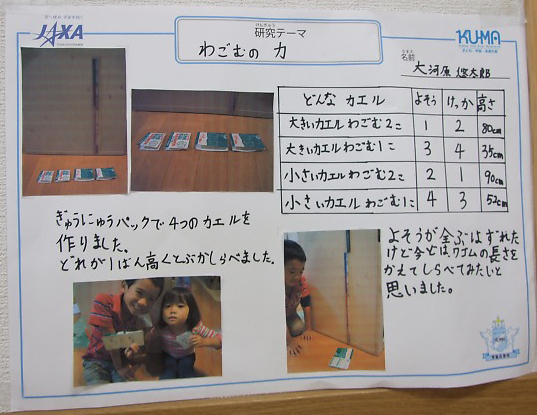 JAXA
けんきゅう
研究テーマ
わごむの 力
KUMA
名前
大河原 悠太郎
どんな カエル よそう けっか 高さ
大きいカエル わごむ2こ 1 2 80cm
大きいカエル わごむ1こ 3 4 35cm
小さいカエル わごむ2こ 2 1 90cm
小さいカエル わごむ1こ 4 3 52cm
ぎゅうにゅうパックで4つのカエルを
作りました。
どれが1ばん高くとぶかしらべました。
よそうが全ぶはずれた
けど今どは、ワゴムの長さを
かえてしらべてみたいと
思いました。